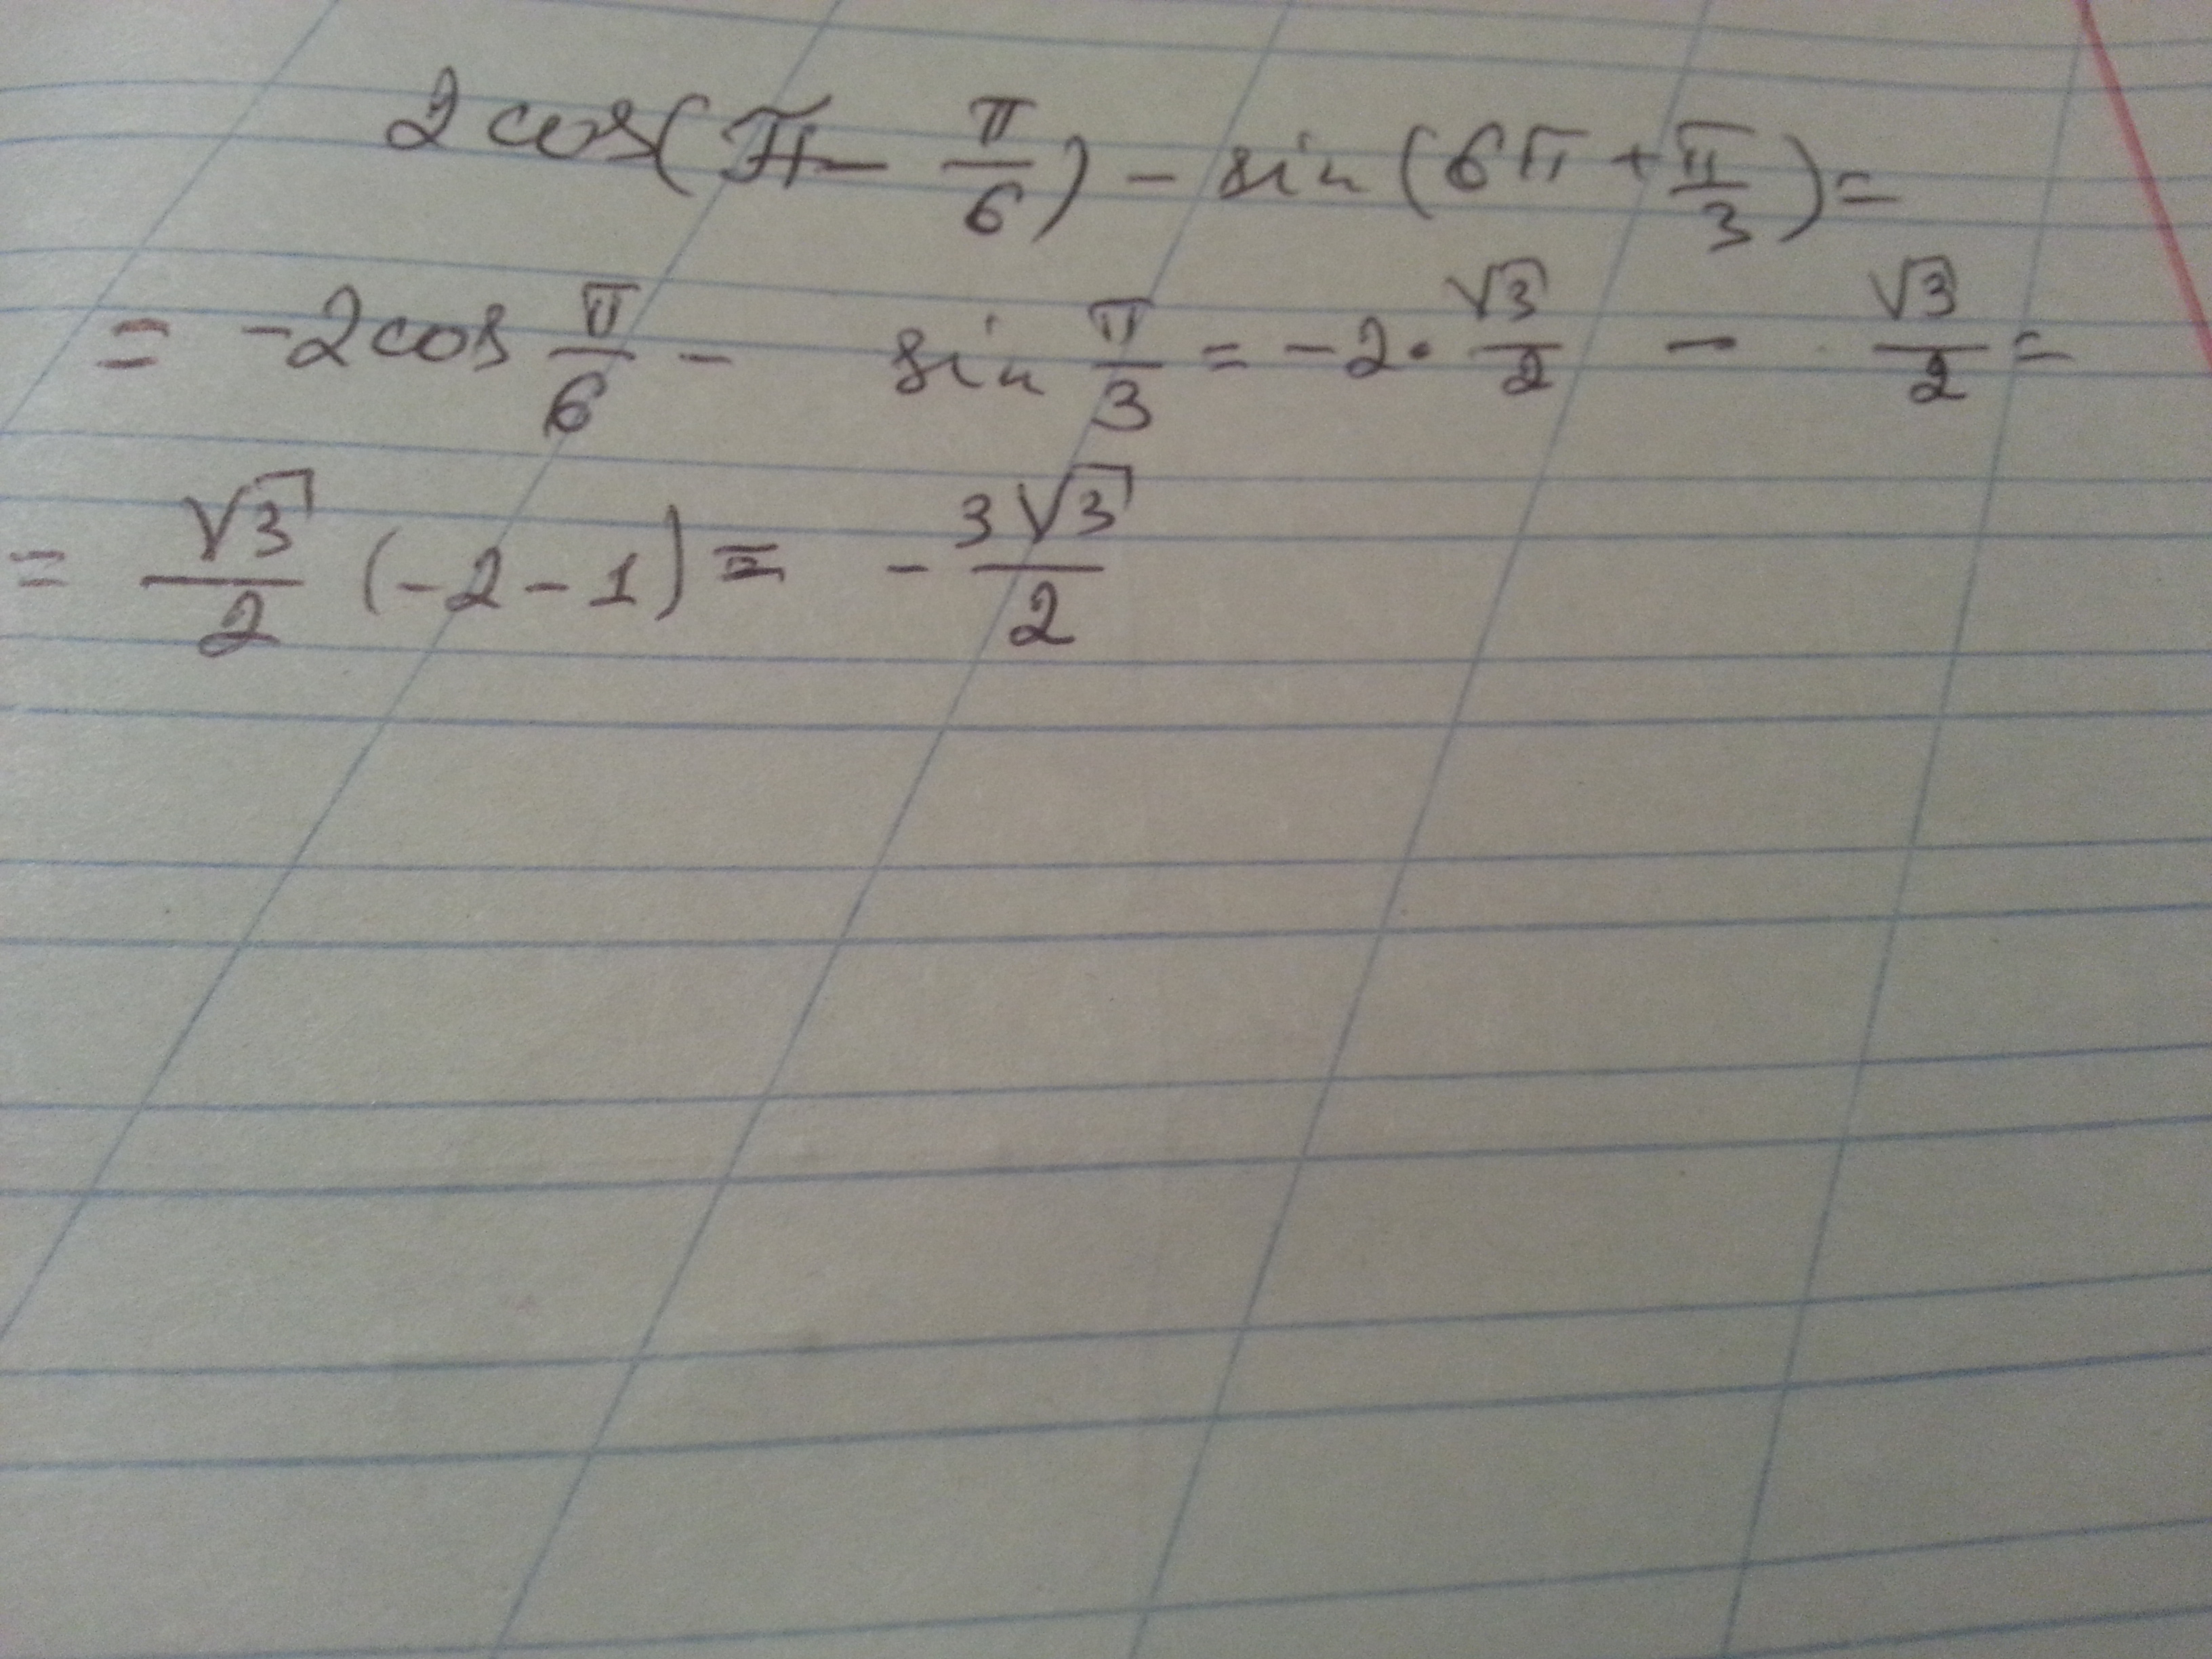 2cos(π - π/6) - sin(6π + π/3) =
= -2cos π/6 - sin π/3 = -2 · √3/2 - √3/2 =
= √3/2 (-2-1) = - 3√3/2